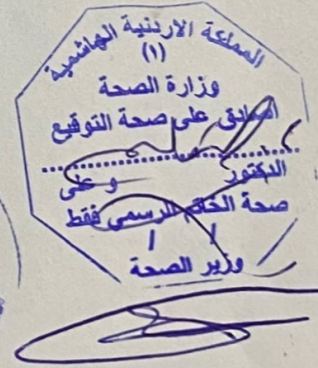 المملكة الاردنية الهاشمية
(١)
وزارة الصحة
اصادق على صحة التوقيع
الدكتور ............ وعلى
صحة الخاتم الرسمي فقط
وزير الصحة